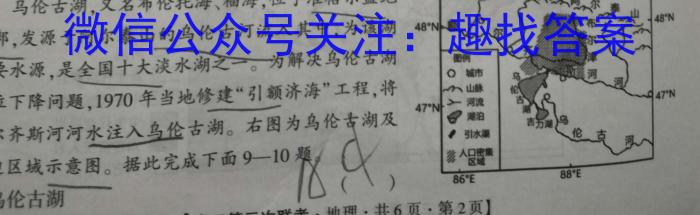 乌伦古湖,又名布伦托海、福海,位于准
部,发源
微信公众号关注:趣找答案
要水源,是全国十大淡水湖之一。为解决乌伦古湖
位下降问题,1970年当地修建“引额济海”工程,将
尔齐斯河河水注入乌伦古湖。右图为乌伦古湖及
边区域示意图。据此完成下面9—10题。
乌伦古湖
( )
48°N
48°N
山
泰
布
尔
津
河
图例
城市
山脉
河流
湖泊
引水渠
人口密集
区域
47°N
47°N
乌
伦
古
湖
吉力湖
乌 伦 古 河
86°E
88°E
次联考·地理·共6页·第2页】